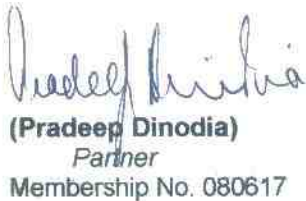 Pradeep Dinodia
(Pradeep Dinodia)
Partner
Membership No. 080617